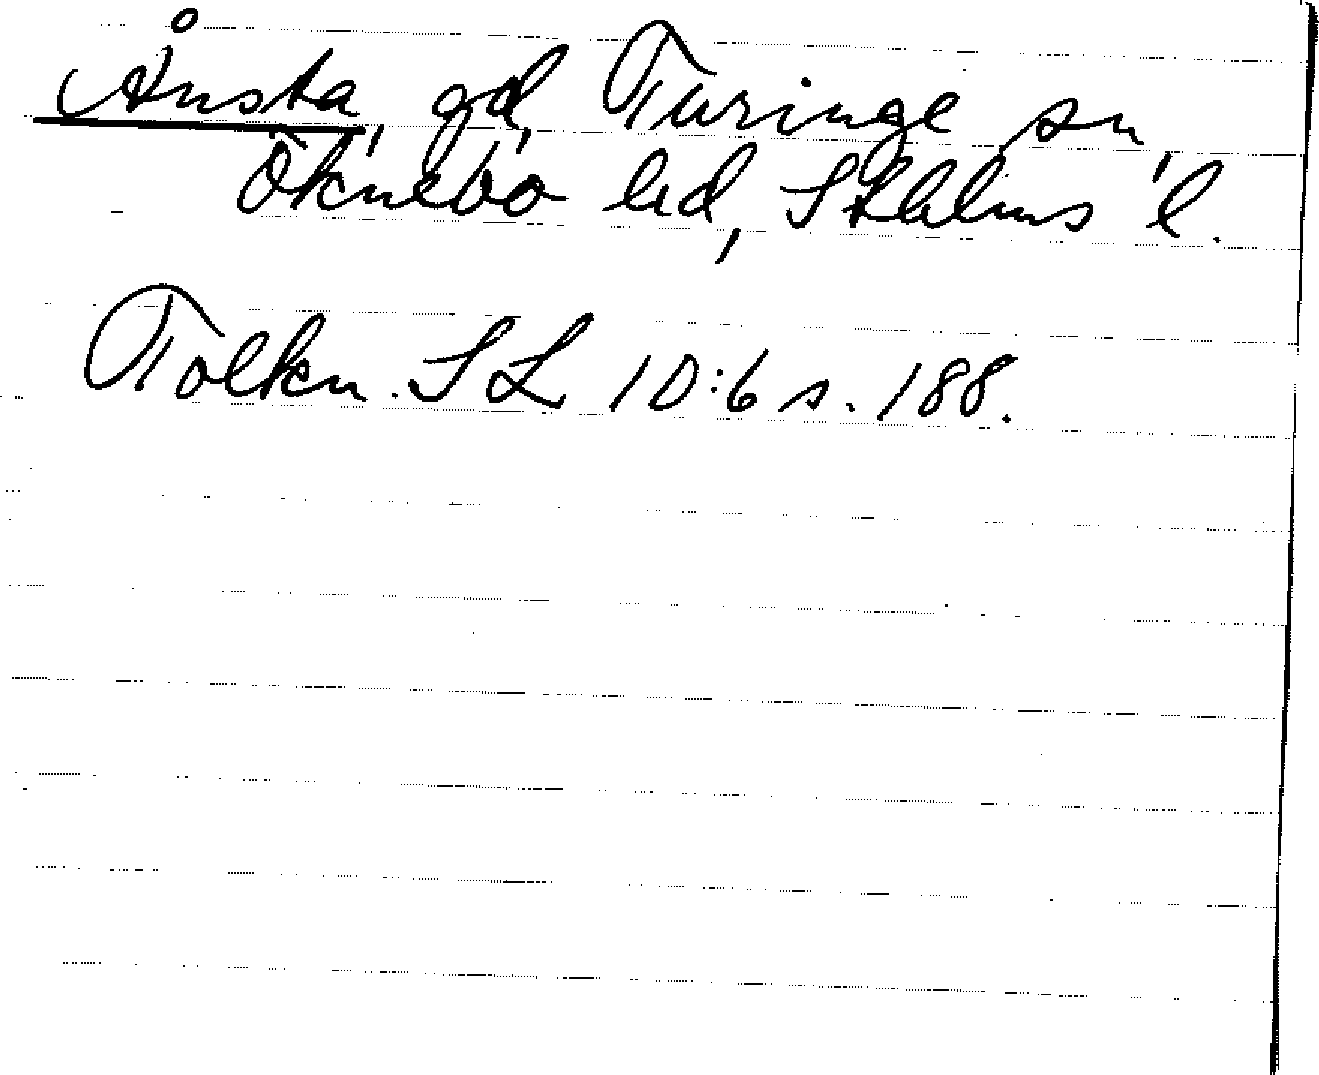 Ånsta, gd, Turinge sn,
Öknebo hd, Sthlms l.
Tolkn. SL 10:6 s. 188.